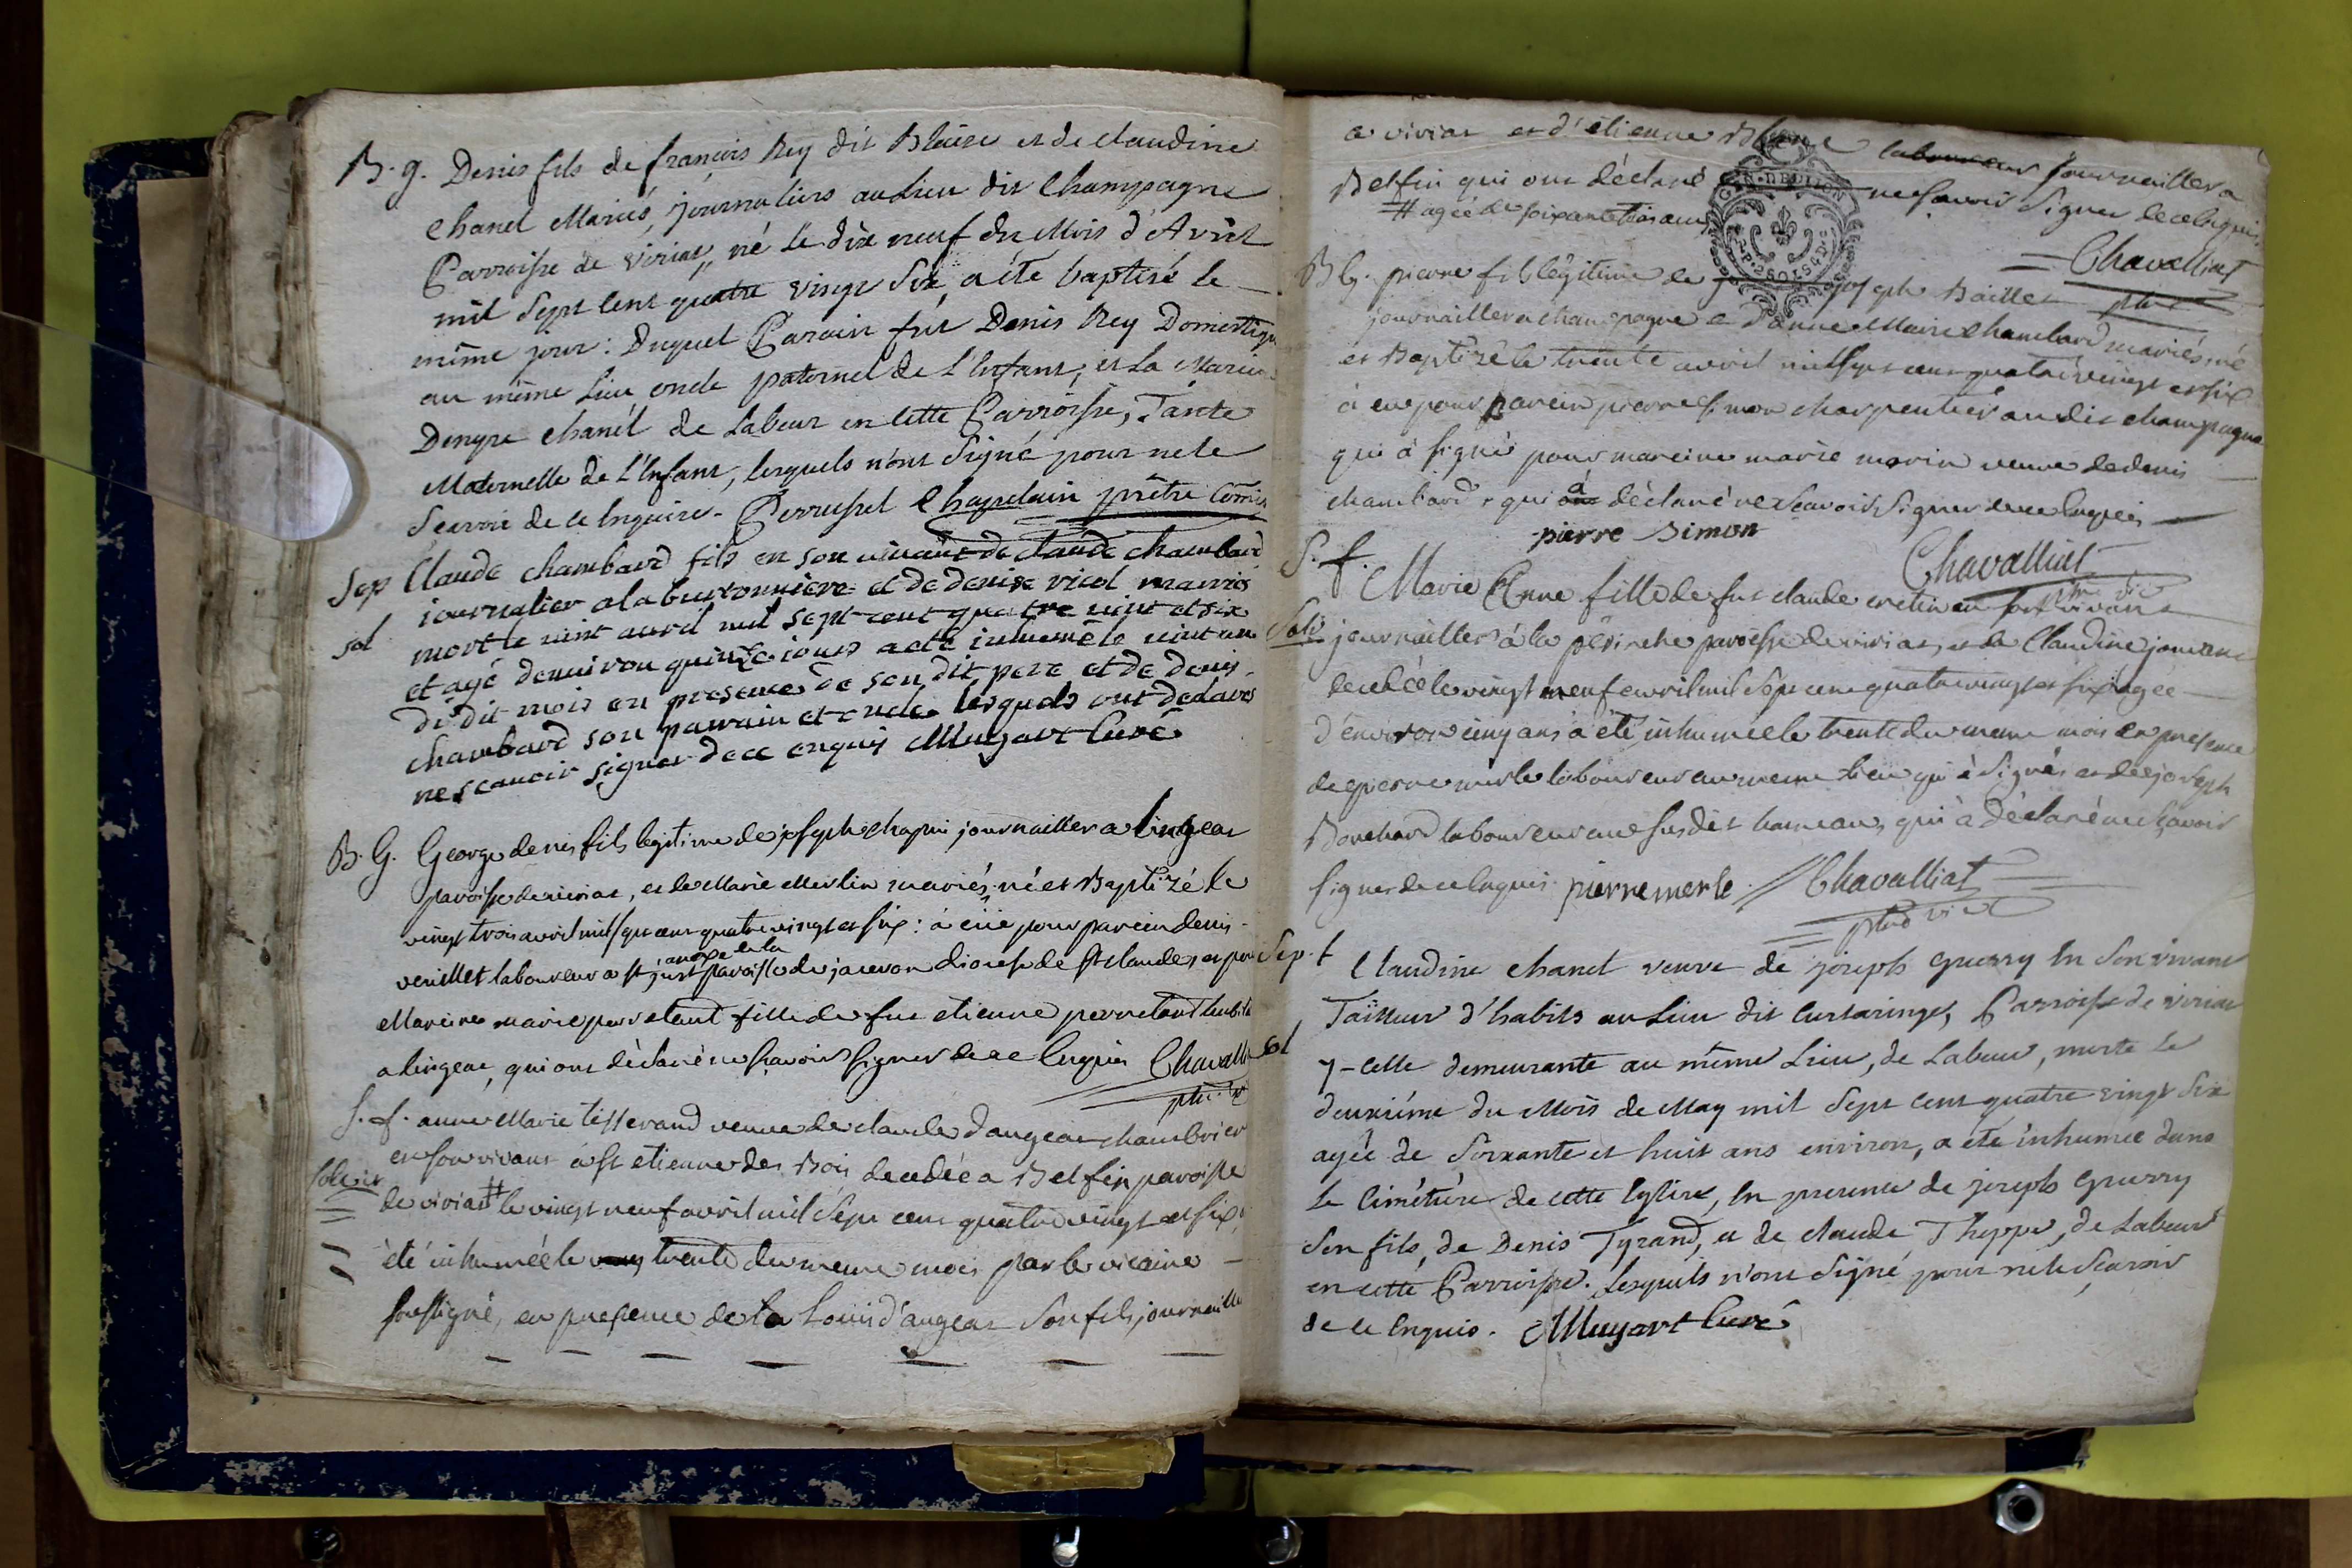 B. g. Denis fils de françois Rey dit Blaise et de claudine
Chanel Mariés, journaliers au Lieu dit Champagne
Parroisse de viriat, né le dix neuf du Mois d'Avril
mil Sept Cent quatre vingt Six, a été baptisé le
même jour: Duquel Parain fut Denis Rey Domestiqu
au même Lieu oncle paternel de L'Enfant, et La Marine
Denyse chanél de Labeur en Cette Parroisse, Tante
Maternelle de L'Enfant, lesquels n'ont Signé pour ne le
Sçavoir de ce Enquire. Perrussel Chapelain prêtre Comis
Sep Claude chambard fils en son vivant de claude chambard
journalier a la buissonniere et de denise vicol marries
sol mort le vint avril mil sept cent quatre vint et six
et agé denviron quinze jours a eté inhumé le vint un
du dit mois en presence de son dit pere et de denis
chambard son parrain et oncle lesquels ont declarés
ne scauoir signer de ce enquis Muyart Curé
B. G. George denis fils legitime de joseph chapui journaillier a lingeat
paroisse de viriat, et de Marie Merlin mariés né et Baptizé le
vingt trois avril mil sept cent quatre vingt et six: à eüe pour parein denis
annexe de la
veuillet laboureur a st just paroisse de jasseron diocese de st claude, et pour
Mareine marie perretant fille de fut etienne perretant
a lingeat, qui ont déclaré ne sçavoir signer de ce Enquis Chavalli
S. f. anne Marie tisserand veuve de claude dangeat chambrier
en son vivant à st etienne des Bois decedée a Belfin paroisse
de viriat # le vingt neuf avril mil Sept cent quatre vingt et six,
été inhumée le trente du meme mois par le vicaire
soussigné, en presence de Louis d'angeat Son fils, journaille
a viriat et d'etienne laboureur journaillier a
Belfin qui ont déclaré ne sçavoir Signer de ce Enquis
# agée de soixante trois ans
Chavalliat
B G. pierre fils légitime de joseph Baillet ptre
journaillier a champagne e d'anne Marie Chambard mariés, né
et Baptizé le trente avril mil sept cent quatre vingt et six
à eue pour parein pierre Simon charpentier au dit champagne
qui à signé pour mareine marie morin veuve de denis
chambard qui a déclaré ne Scavoir Signer de ce Enquis
pierre Simon
Chavalliat
S. f. Marie Anne fille de fut claude cretin en son vivant
journaillier à la paroisse de viriat, et de Claudine
decedée le vingt neuf avril mil Sept cent quatre vingt et six agée
d'environ cinq ans à été inhumée le trente du meme mois en presence
de pierre merle laboureur au meme lieu qui à Signés et de joseph
Bouchard laboureur au susdit hameau, qui à déclaré ne Sçavoir
signer de ce Enquis pierre merle Chavalliat
Sep. f Claudine chanel veuve de joseph guerry En Son vivant
Tailleur d'habits au Lieu dit Curtaringe, Parroisse de viriat
y-Celle demeurante au même Lieu, de Labeur, morte le
deuxiéme du Mois de May mil Sept Cent quatre vingt Six
agée de Soixante et huit ans environ, a été inhumée dans
Le Cimétiére de cette Eglise, En presence de joseph guerry
Son fils, de Denis Tyrand, et de claude Theppe, de Labeur
en cette Parroisse. Lesquels n'ont Signé pour ne le Sçavoir
de ce Enquis. Muyart Curé